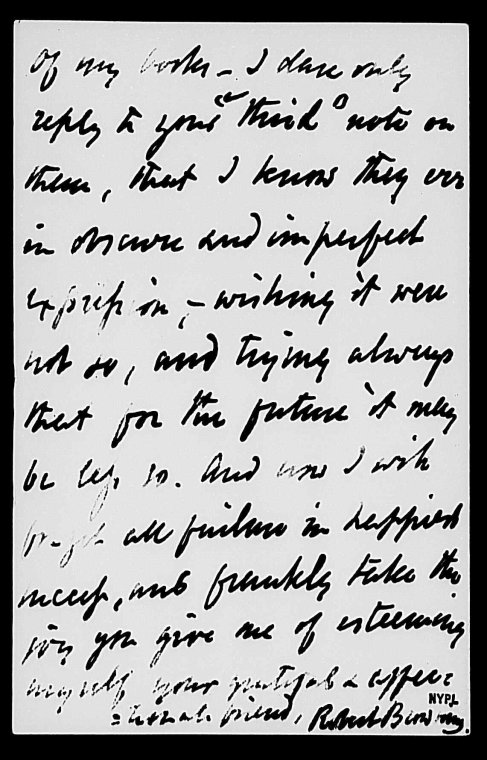 of my books – I dare only
reply to your "third" note on
them, that I know they err
in obscure and imperfect
expression, – wishing it were
not so, and trying always
that for the future it may
be less so. And now I will
forget all failure in happiest
success, and frankly take the
joy you give me of esteeming
myself your grateful & affec=
=tionate friend, Robert Browning.
NYPL